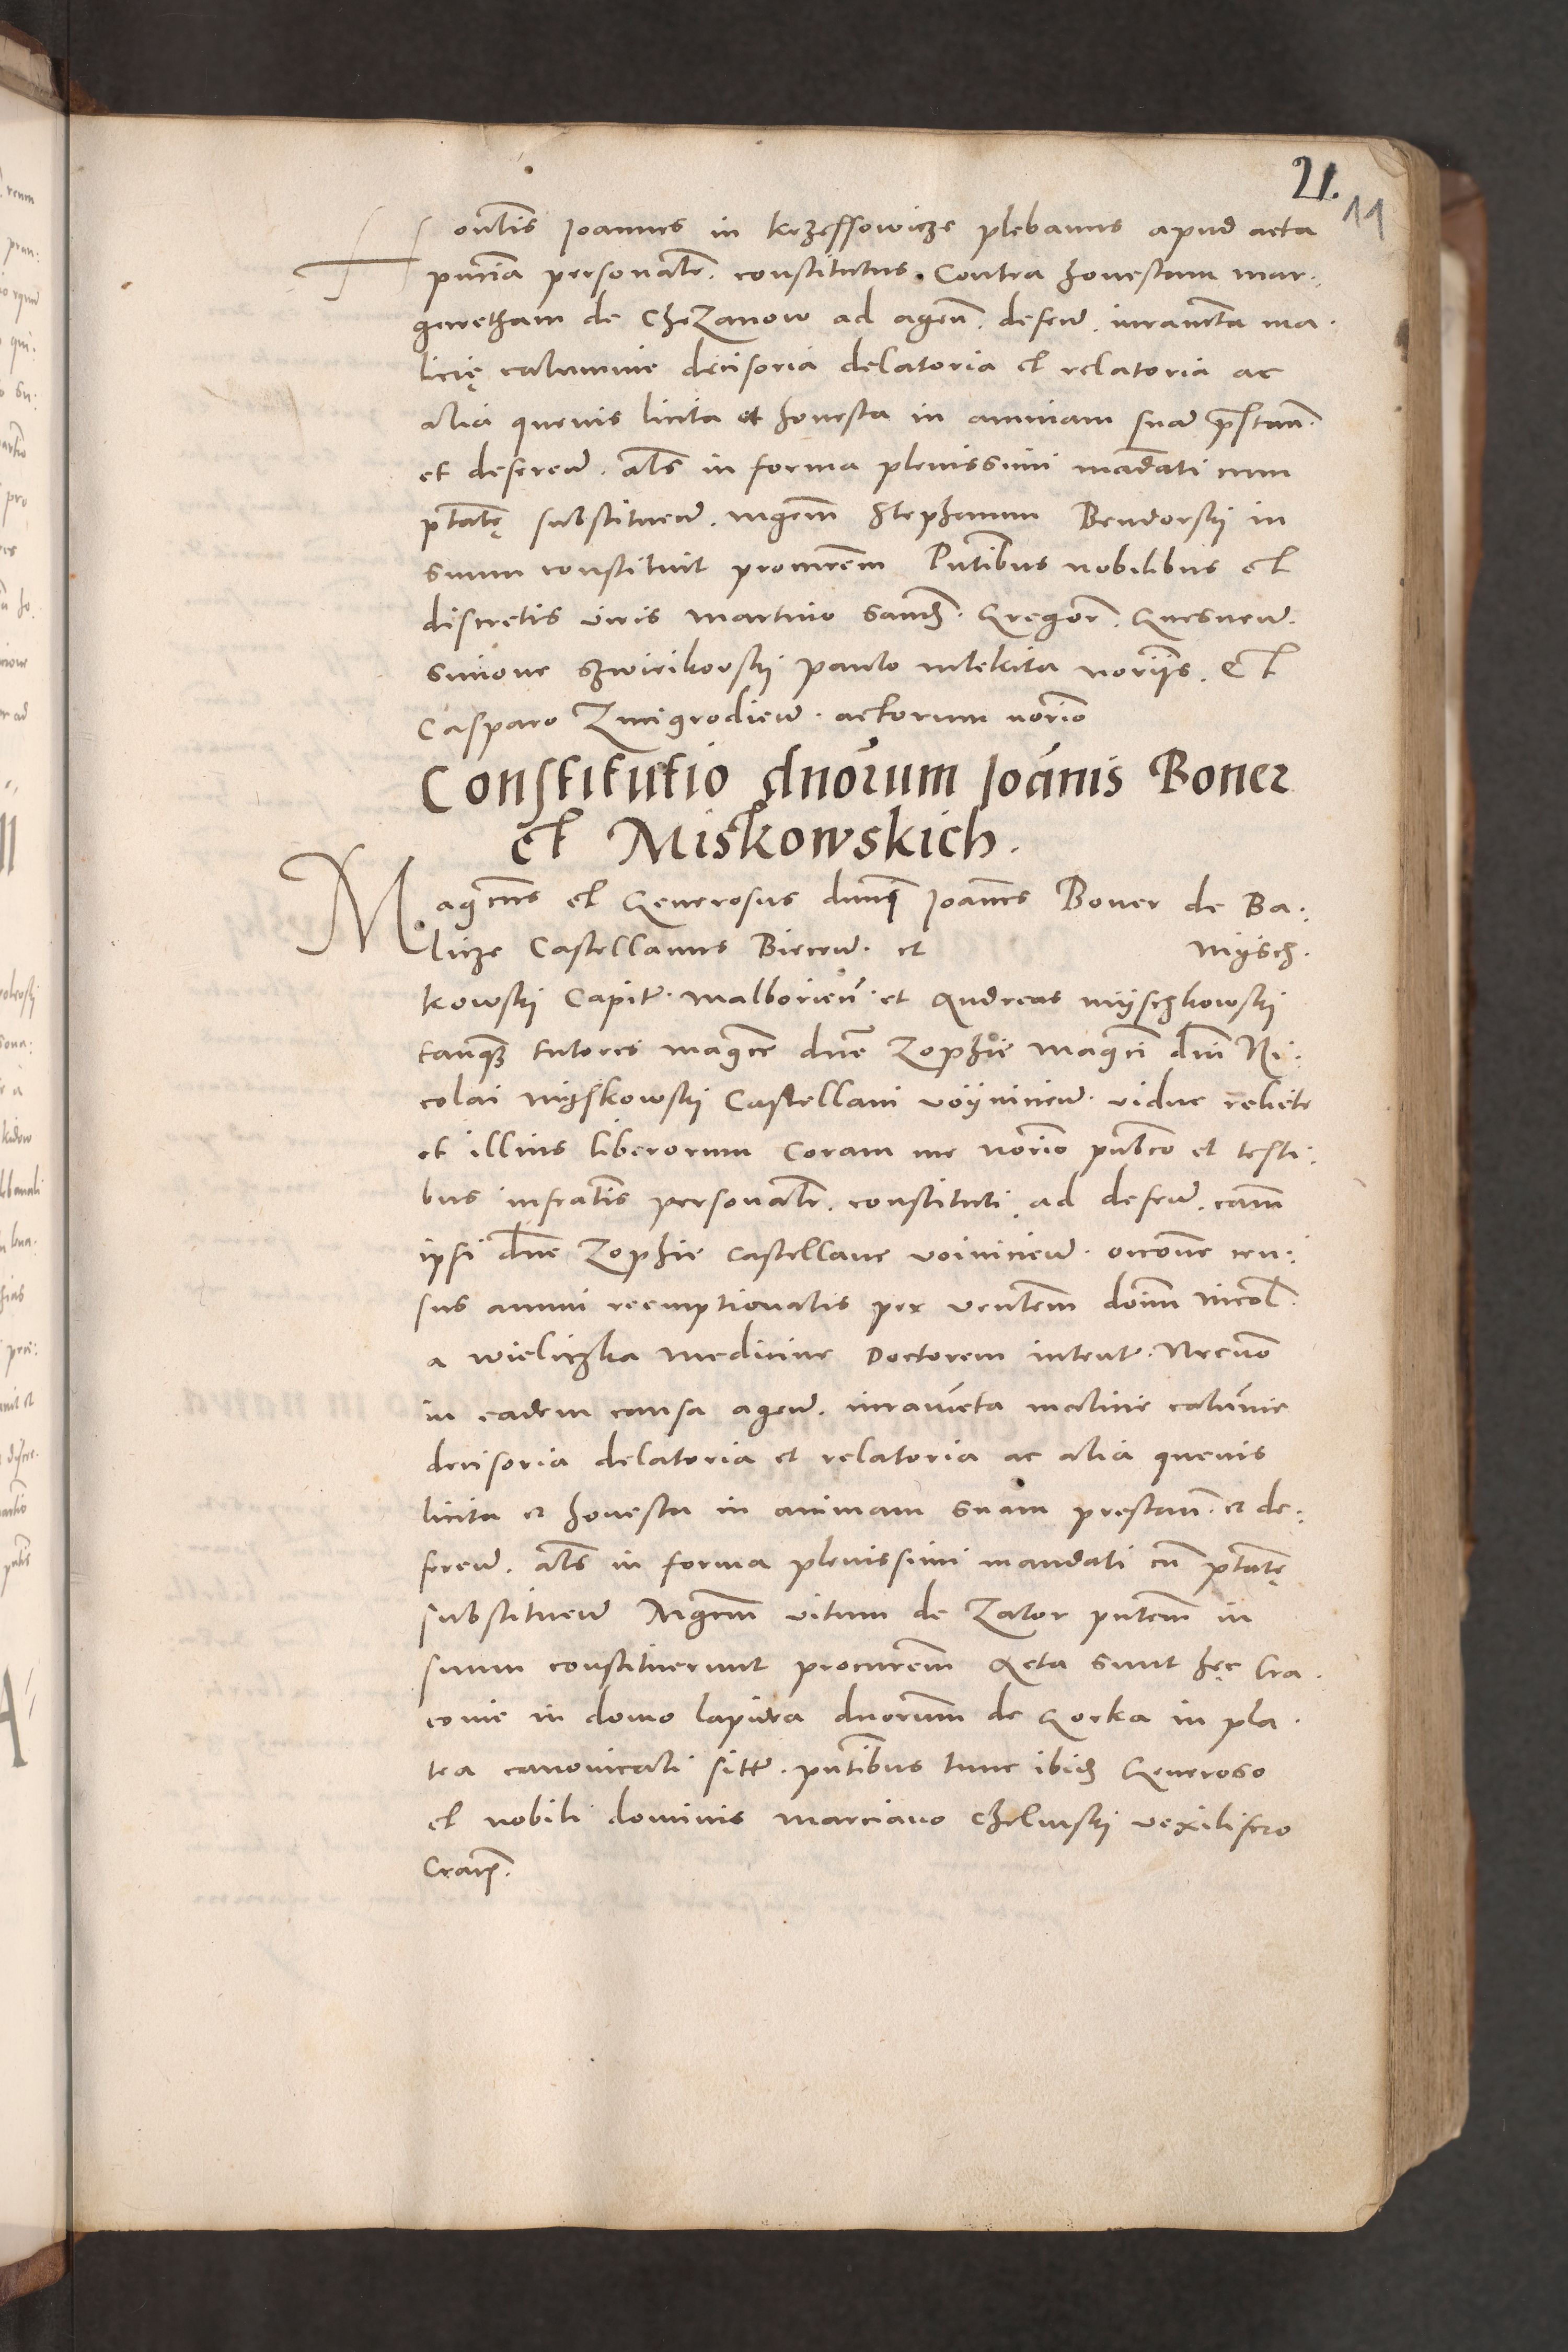 21.
11
Honlis Joannes in krzessowicze plebanus apud acta
pncia personalr. constitutus. Contra honestam mar:
garetham de Chrzanow ad agen. defen. iuramta ma:
licię calumnie decisoria delatoria et relatoria ac
alia quevis licita et honesta in animam sua pstan.
et deferen. als in forma plenissimi madati cum
ptatę substituen. mgrm Stephanum Bendorskj in
suum constituit procurem Pntibus nobilibus et
discretis viris Martino Gregor. Gnesnen.
Simone Paulo mlekita noriis. Et
Casparo Zmigrodien. actorum norio
Constitutio dnorum Joanis Boner
et Miskowskich.
Magcus et Generosus dnnq Joannes Boner de Ba:
licze Castellanus Biecen. et Mysch:
kowskj Capits. Malborien. et Andreas myschkowskj
tanqz tutores magce dne Zophie magci dni Ni:
colai myskowskj Castellani voynicien. vidue relicte
et illius liberorum Coram me norio publco et testi:
bus infratis personalr. constituti. ad defen. cam
ipsi dne Zophie castellane voinicien. occone cen:
sus annui reemptionalis per ventem donm nicol.
a wieliczka medicine Doctorem intentr. Necno
in eadem causa agen. iurameta malicie calumnie
decisoria delatoria et relatoria ac alia quevis
licita et honesta in animam suam prestan. et de:
feren. als in forma plenissimi mandati cu ptatę
substituen Mgrm vitum de Zator pntem in
suum constituerunt procurem Acta sunt hęc Cra:
covie in domo lapidea dnorum de Gorka in pla:
tea canonicali sitr. pntibus tunc ibidz Generoso
et nobili dominis marciano Chelmskj vexilifero
Cracz.